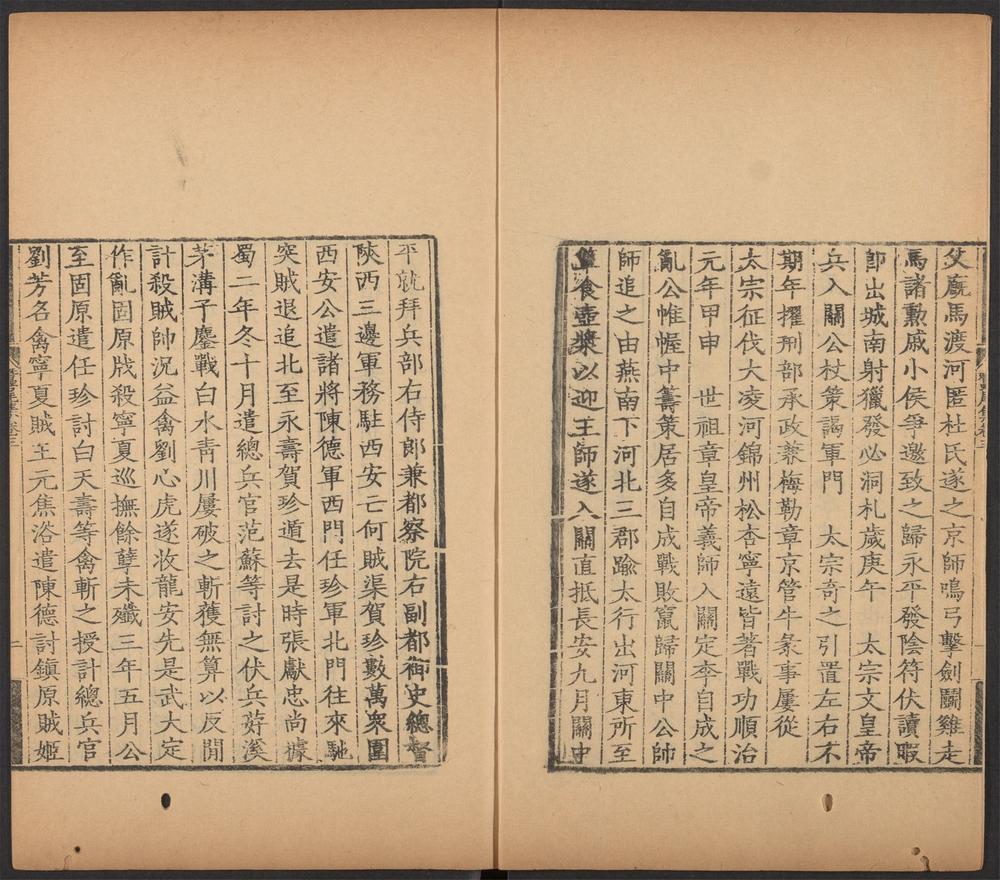 父廐馬渡河匿杜氏遂之京師鳴弓擊劍鬭雞走
馬諸勲戚小侯爭邀致之歸永平發陰符伏讀暇
卽出城南射獵發必洞札歲庚午 太宗文皇帝
兵入關公杖策謁軍門 太宗奇之引置左右不
期年擢刑部承政兼梅勒章京管牛彔事屢從
太宗征伐大凌河錦州松杏寧遠皆著戰功順治
元年甲申 世祖章皇帝義師入關定李自成之
亂公惟幄中籌策居多自成戰敗竄歸關中公帥
師追之由燕南下河北三郡踰太行出河東所至
簞食壺漿以迎王師遂入關直抵長安九月關中
平就拜兵部右侍郎兼都察院右副都御史總督
陝西三邊軍務駐西安亡何賊渠賀珍數萬衆圍
西安公遣諸將陳德軍西門任珍軍北門往來馳
突賊退追北至永壽賀珍遁去是時張獻忠尚據
蜀二年冬十月遣總兵官范蘇等討之伏兵葫溪
茅溝子鏖戰白水青川屢破之斬獲無算以反閒
計殺賊帥況益禽劉心虎遂收龍安先是武大定
作亂固原戕殺寧夏巡撫餘孽未殲三年五月公
至固原遣任珍討白天壽等禽斬之授計總兵官
劉芳名禽寧夏賊王元焦浴遣陳德討鎭原賊姬